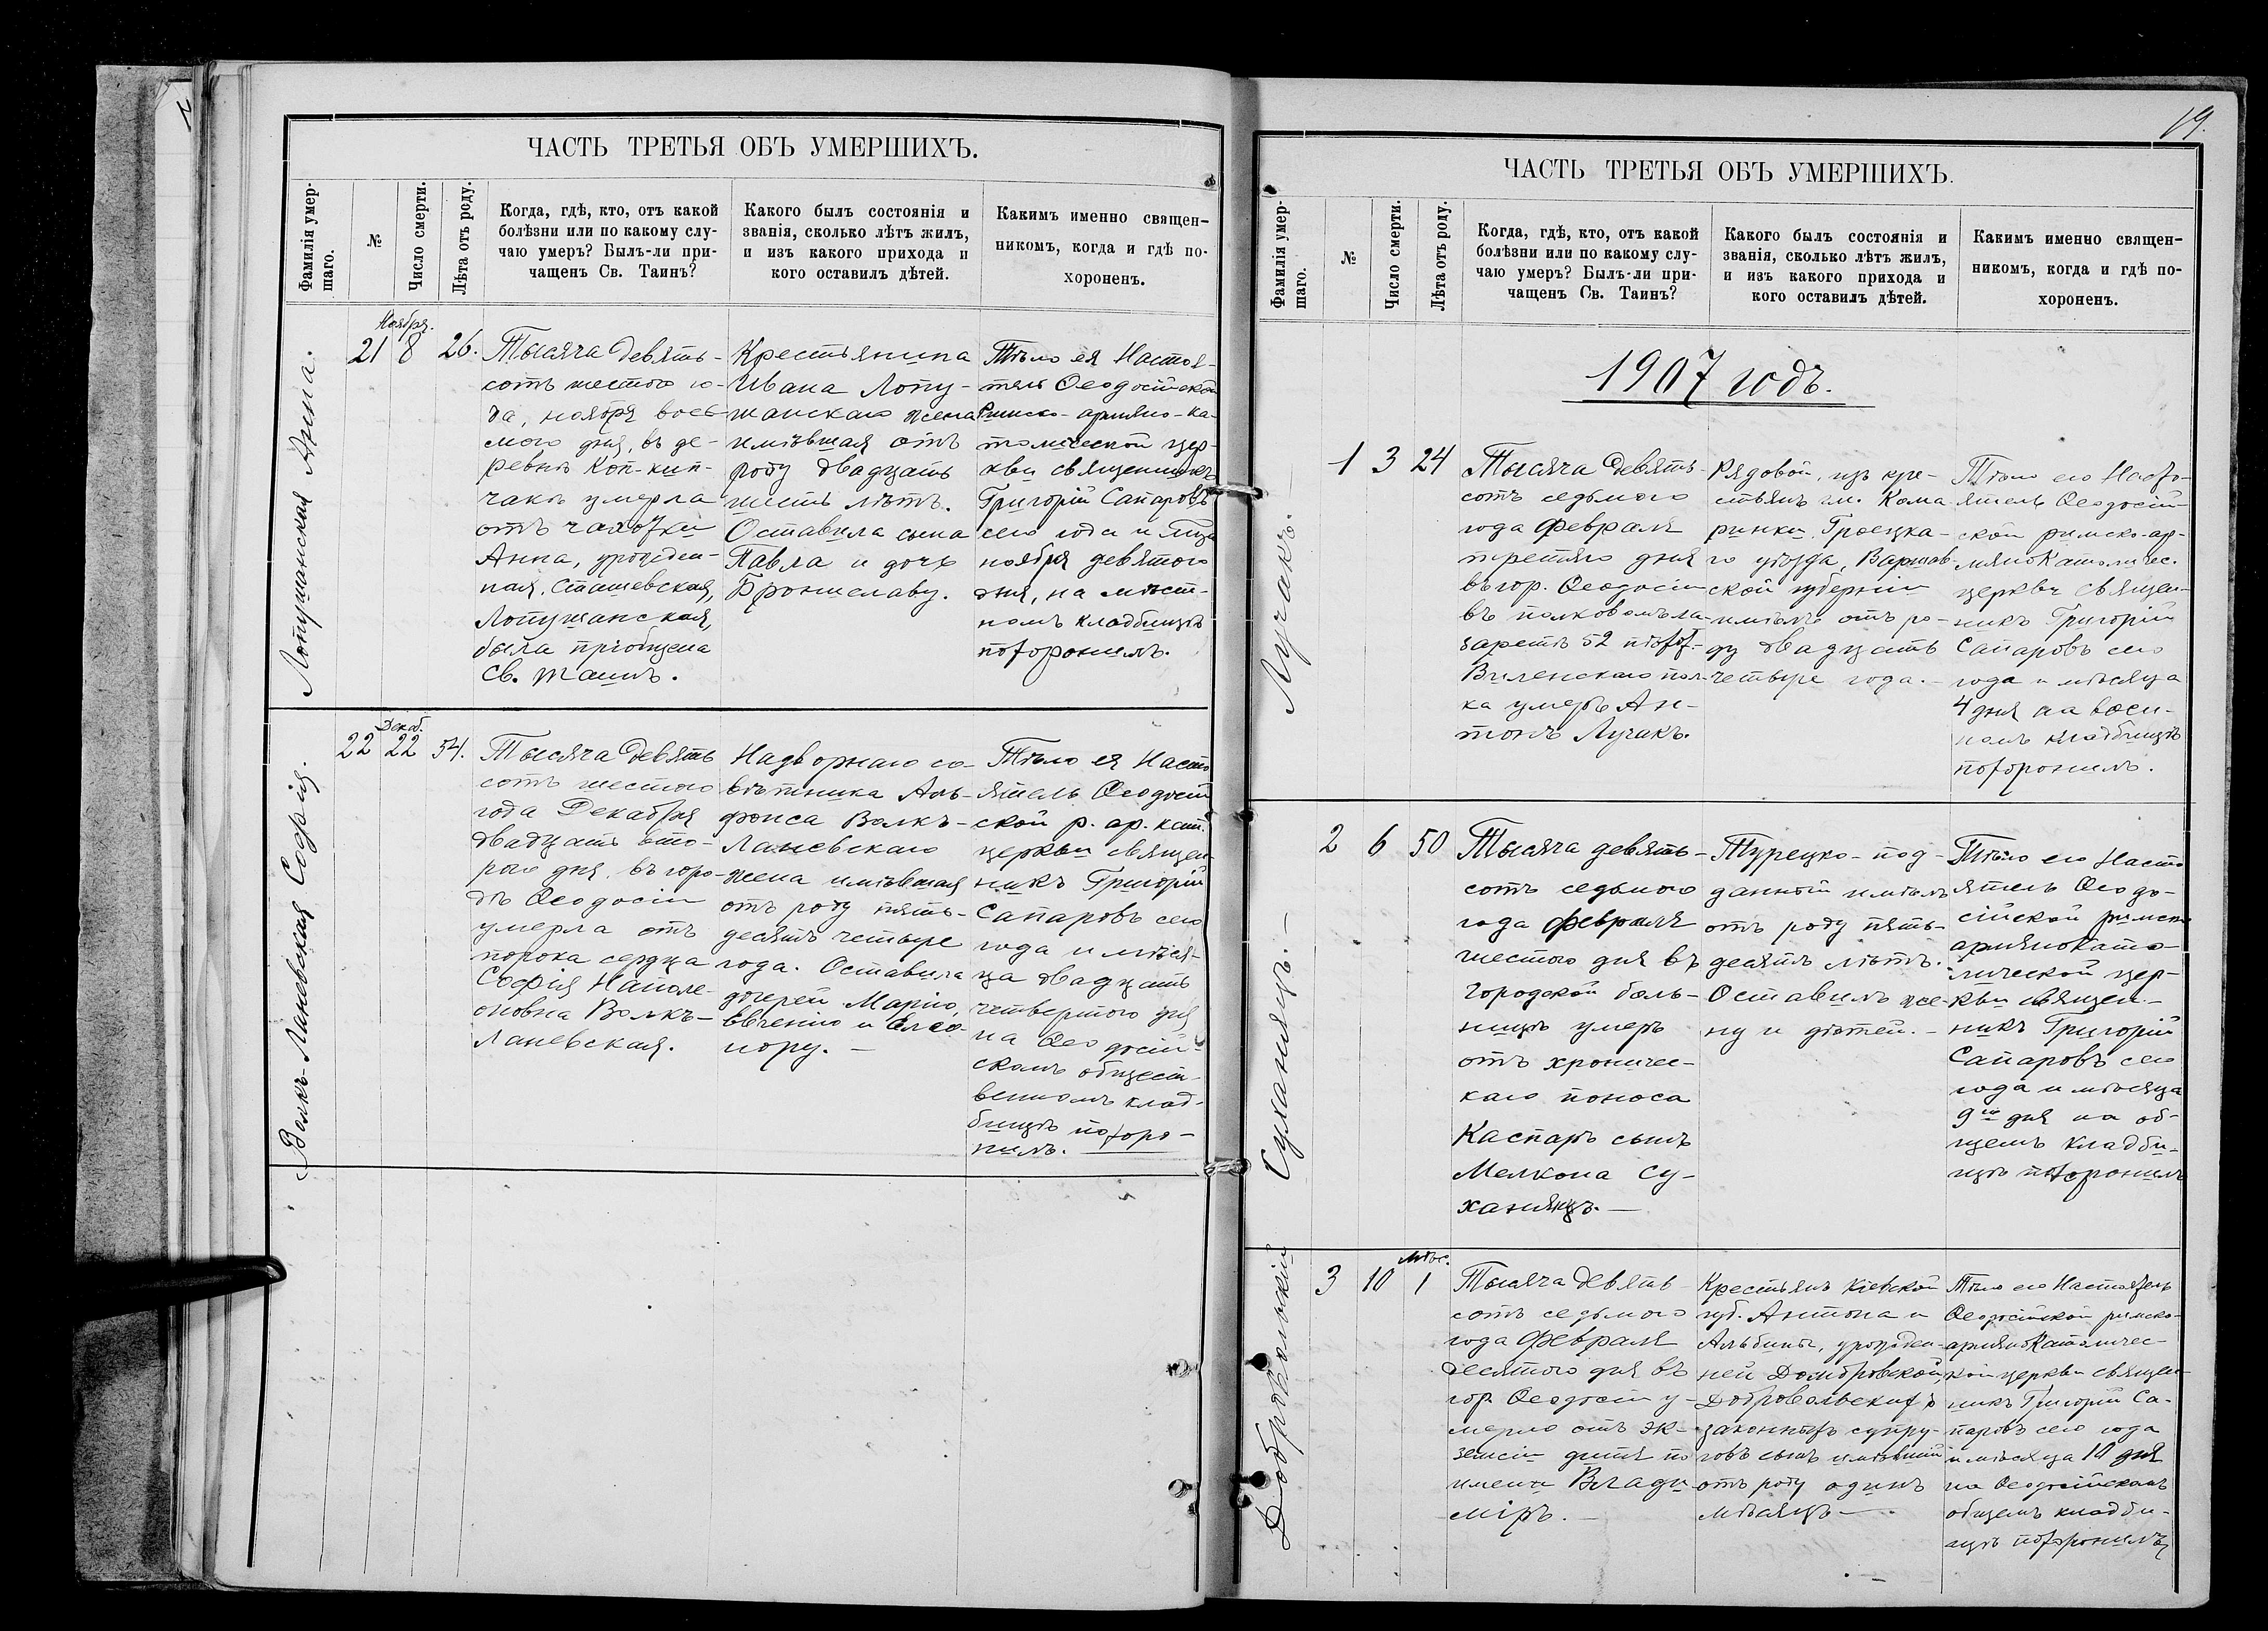 ЧАСТЬ ТРЕТЬЯ ОБЪ УМЕРШИХЪ.
Фамилія умер-
шаго.
№
Число смерти.
Лѣта отъ роду.
Когда, гдѣ, кто, отъ какой
болѣзни или по какому слу-
чаю умеръ? Былъ-ли при-
чащенъ Св. Таинъ?
Какого былъ состоянія и
званія, сколько лѣтъ жилъ,
и изъ какого прихода и
кого оставилъ дѣтей.
Какимъ именно священ-
никомъ, когда и гдѣ по-
хороненъ.
Лопушанская Анна.
Ноября.
21 8 26.
Тысяча девять-
сотъ шестого го-
да, ноября вось-
мого дня, въ де-
ревнѣ Коп-кип-
чакъ умерла
отъ чахотки
Анна, урожден-
ная Сташевская,
Лопушанская,
была пріобщена
Св. Таинъ.
Крестьянина
Ивана Лопу-
шанскаго жена
имѣвшая отъ
роду двадцать
шесть лѣтъ.
Оставила сына
Павла и дочь
Брониславу.
Тѣло ея Настоя-
тель Ѳеодосійской
Римско-армяно-ка-
толической цер-
кви священникъ
Григорій Сапаровъ
сего года и
ноября девятого
дня, на мѣст-
номъ кладбищѣ
похоронилъ.
Волкъ-Ланевская Софія.
Декаб.
22 22 54.
Тысяча девять
сотъ шестого
года Декабря
двадцать вто-
рого дня, въ горо-
дѣ Ѳеодосіи
умерла отъ
порока сердца
Софія Наполе-
оновна Волкъ-
Ланевская.
Надворнаго со-
вѣтника Аль-
фонса Волкъ-
Ланевскаго
жена имѣвшая
отъ роду пять-
десять четыре
года. Оставила
дочерей Марію,
Евгенію и Елео-
нору. —
Тѣло ея Насто-
ятель Ѳеодосій
ской р. ар. кат.
церкви священ-
никъ Григорій
Сапаровъ сего
года и мѣся-
ца двадцать
четвертого дня
на Ѳеодосій-
скомъ общест-
венномъ клад-
бищѣ похоро-
нилъ.
19.
ЧАСТЬ ТРЕТЬЯ ОБЪ УМЕРШИХЪ.
Фамилія умер-
шаго.
№
Число смерти.
Лѣта отъ роду.
Когда, гдѣ, кто, отъ какой
болѣзни или по какому слу-
чаю умеръ? Былъ-ли при-
чащенъ Св. Таинъ?
Какого былъ состоянія и
званія, сколько лѣтъ жилъ,
и изъ какого прихода и
кого оставилъ дѣтей.
Какимъ именно священ-
никомъ, когда и гдѣ по-
хороненъ.
1907 годъ.
Лучакъ.
1 3 24
Тысяча девять-
сотъ седьмого
года февраля
третяго дня
въ гор. Ѳеодосіи
въ полковомъ ла-
заретѣ 52 пѣхот.
Виленскаго пол-
ка умеръ Ан-
тонъ Лучакъ.
Рядовой, изъ кре-
стьянъ гм. Кома
ринки Гроецка-
го уѣзда, Варшав-
ской губерніи
имѣлъ отъ ро-
ду двадцать
четыре года. —
Тѣло его Насто-
ятель Ѳеодосій-
ской римско-ар-
мяноКатоличес.
церкви священ-
никъ Григорій
Сапаровъ сего
года и мѣсяца
4 дня на воен-
номъ кладбищѣ
похоронилъ.
Суханянцъ. —
2 6 50
Тысяча девять-
сотъ седьмого
года февраля
шестого дня въ
городской боль-
ницѣ умеръ
отъ хроничес-
каго поноса
Каспаръ сынъ
Мелкона Су-
ханянцъ. —
Турецко-под-
данный имѣлъ
отъ роду пять-
десять лѣтъ.
Оставилъ же-
ну и дѣтей. —
Тѣло его Насто
ятель Ѳеодо-
сійской римско
армяноКато-
лической цер-
кви священ-
никъ Григорій
Сапаровъ сего
года и мѣсяца
9го дня на об-
щемъ кладби-
щѣ похоронилъ
Добровольскій
мѣс.
3 10 1
Тысяча девять
сотъ седьмого
года февраля
десятого дня въ
гор. Ѳеодосіи у-
мерло отъ эк-
земсіи дитя по
имени Влади
міръ. —
Крестьянъ Кіевской
губ. Антона и
Альбины, урожден-
ней Домбровской,
Добровольскихъ
законныхъ супру-
говъ сынъ имѣвшій
отъ роду одинъ
мѣсяцъ —
Тѣло его Настоятель
Ѳеодосійской римско-
армяноКатоличес-
кой церкви священ-
никъ Григорій Са-
паровъ сего года
и мѣсяца 10 дня
на Ѳеодосійскомъ
общемъ кладби-
щѣ похоронилъ